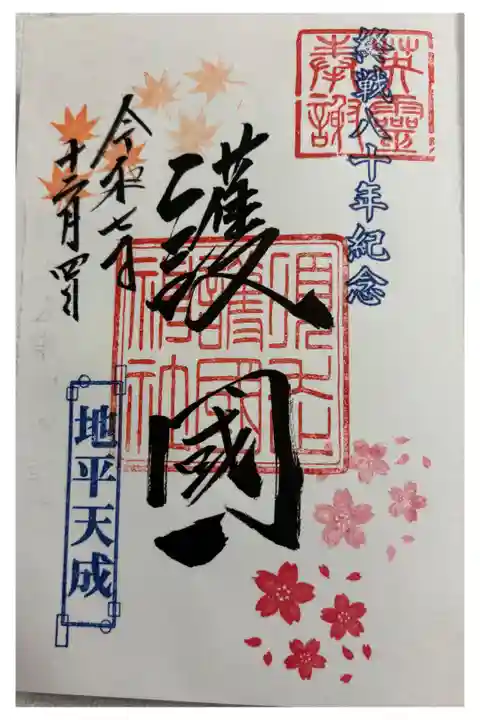 英靈
奉謝
終戰八十年紀念
護國
護國
神社
令和七年
十二月四日
地平天成